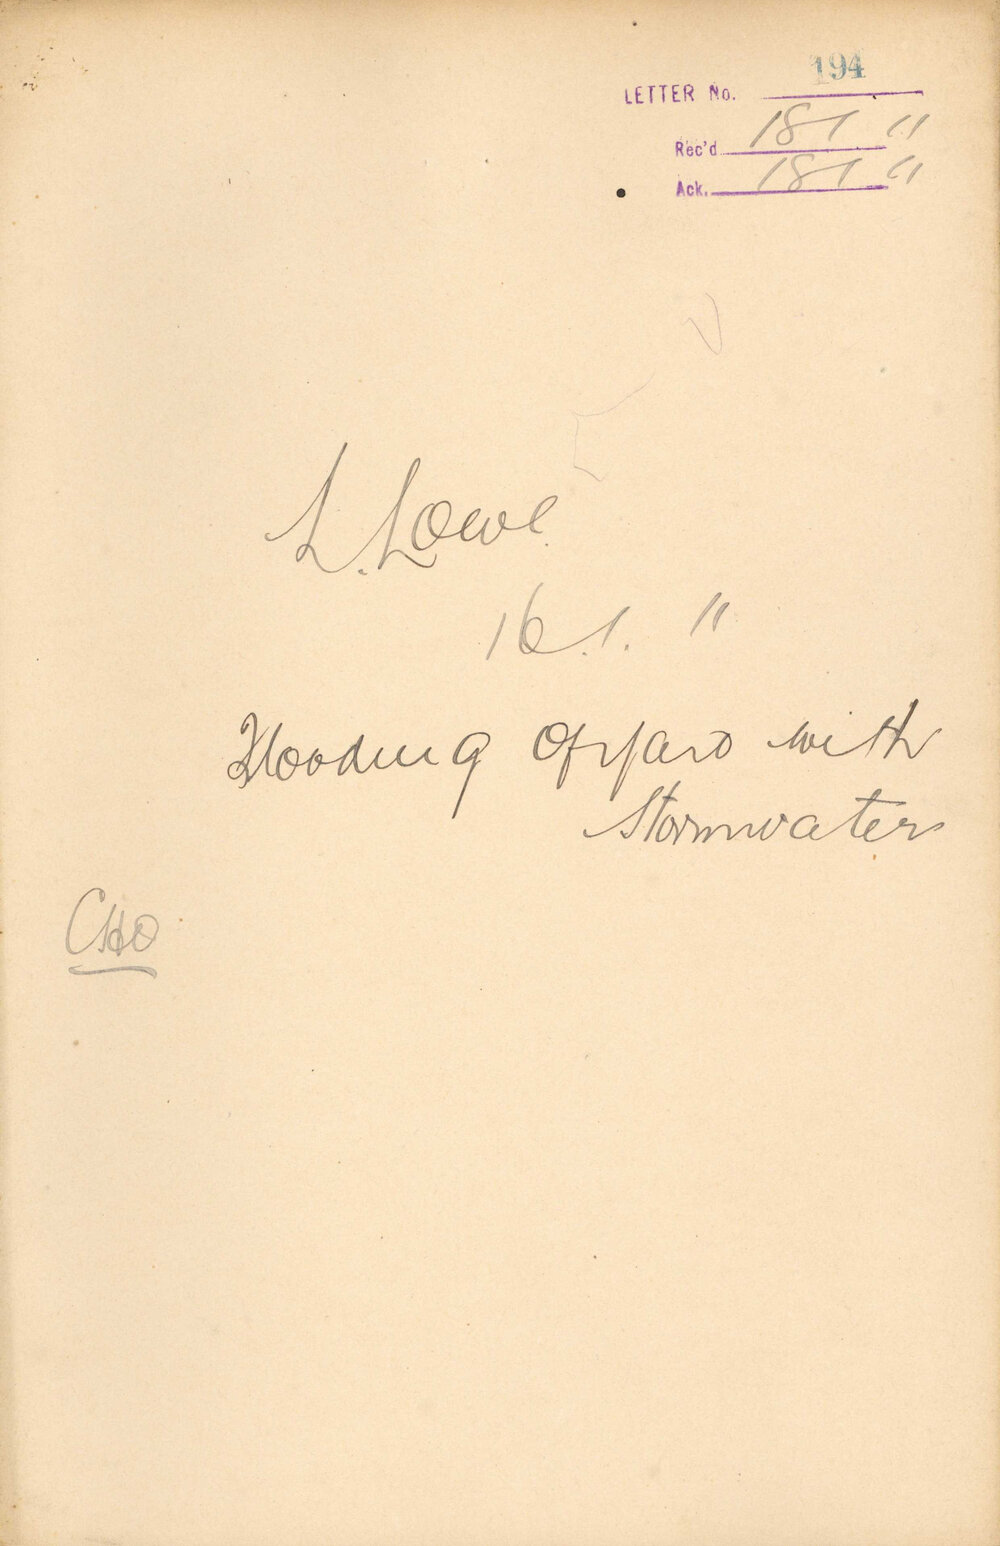 194
LETTER No.
Rec'd 18 1 11
Ack. 18 1 11
L. Lowe
16.1. 11
Flooding of yard with
Stormwater
CHO